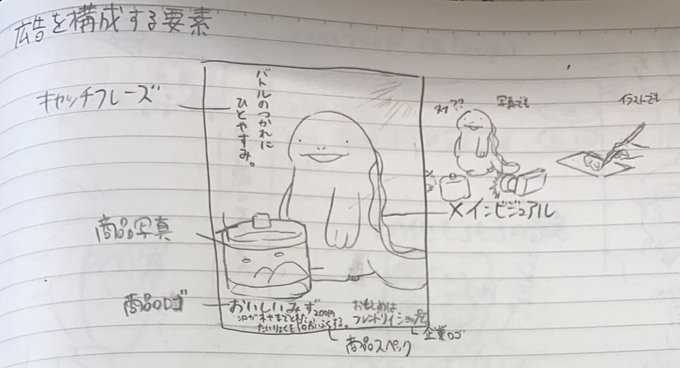 広告を構成する要素
キャッチフレーズ
バトルのつかれに
ひとやすみ。
商品写真
商品ロゴ
おいしいみず
200円
たいりょくを50かいふくする。
おもとめは
フレンドリィショップ
商品スペック
企業ロゴ
メインビジュアル
??
写真でも
イラストでも